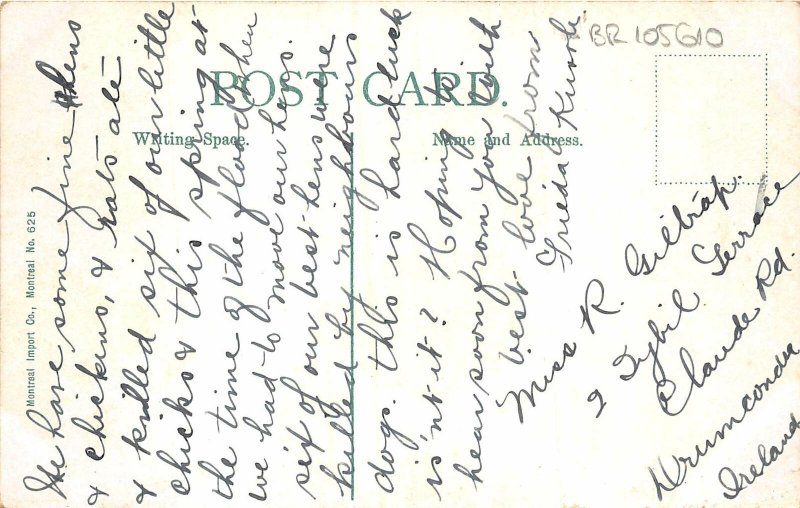 BR 105610
POST CARD.
Writing Space.
Name and Address.
Montreal Import Co., Montreal No. 625
We have some fine hens
& chickins, & rats ate
& killed six of our little
chicks & this spring at
the time of the flood when
we had to move our hens.
six of our best hens were
killed by neighbours
dogs. this is hard luck
is'nt it? Hoping to
hear soon from you with
best love from
Freda
Miss R. Gilbrap.
2 Sybil Terrace
Claude Rd.
Drumcondra
Ireland